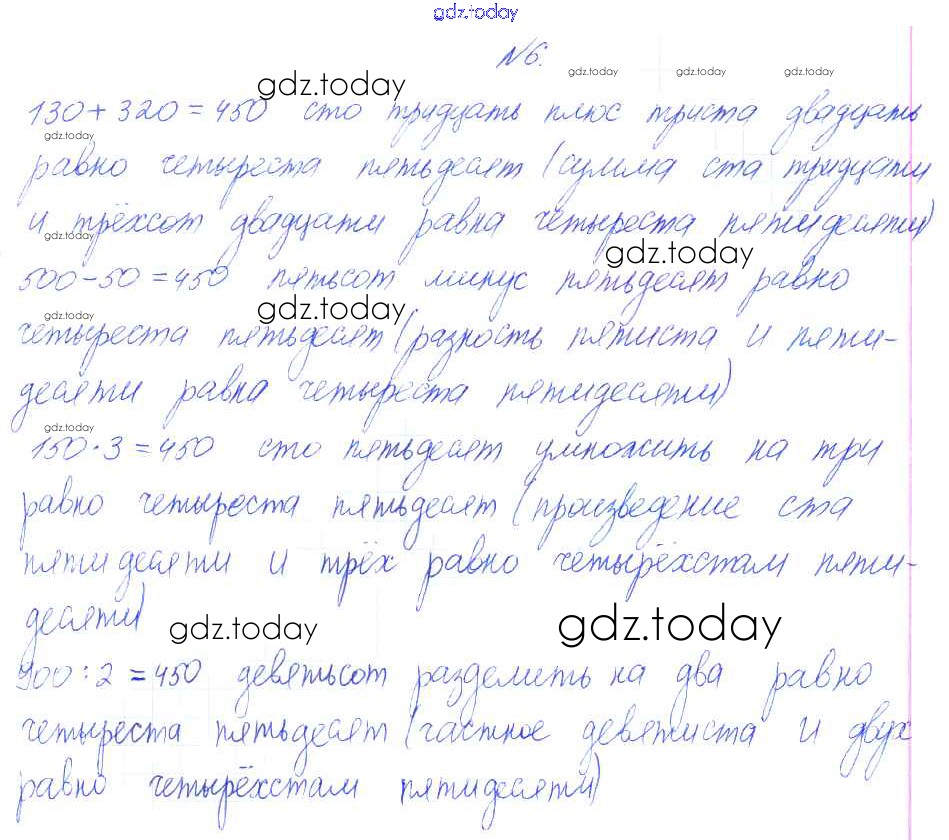 gdz.today
№6.
gdz.today gdz.today gdz.today gdz.today
130+320=450 сто тридцать плюс триста двадцать
gdz.today
равно четыреста пятьдесят (сумма ста тридцати
и трёхсот двадцати равна четыреста пятидесяти)
gdz.today gdz.today
500-50=450 пятьсот минус пятьдесят равно
gdz.today gdz.today
четыреста пятьдесят (разность пятиста и пяти-
десяти равна четыреста пятидесяти)
gdz.today
150·3=450 сто пятьдесят умножить на три
равно четыреста пятьдесят (произведение ста
пятидесяти и трёх равно четырёхстам пяти-
десяти)
gdz.today gdz.today
900:2=450 девятьсот разделить на два равно
четыреста пятьдесят (частное девятиста и двух
равно четырёхстам пятидесяти)